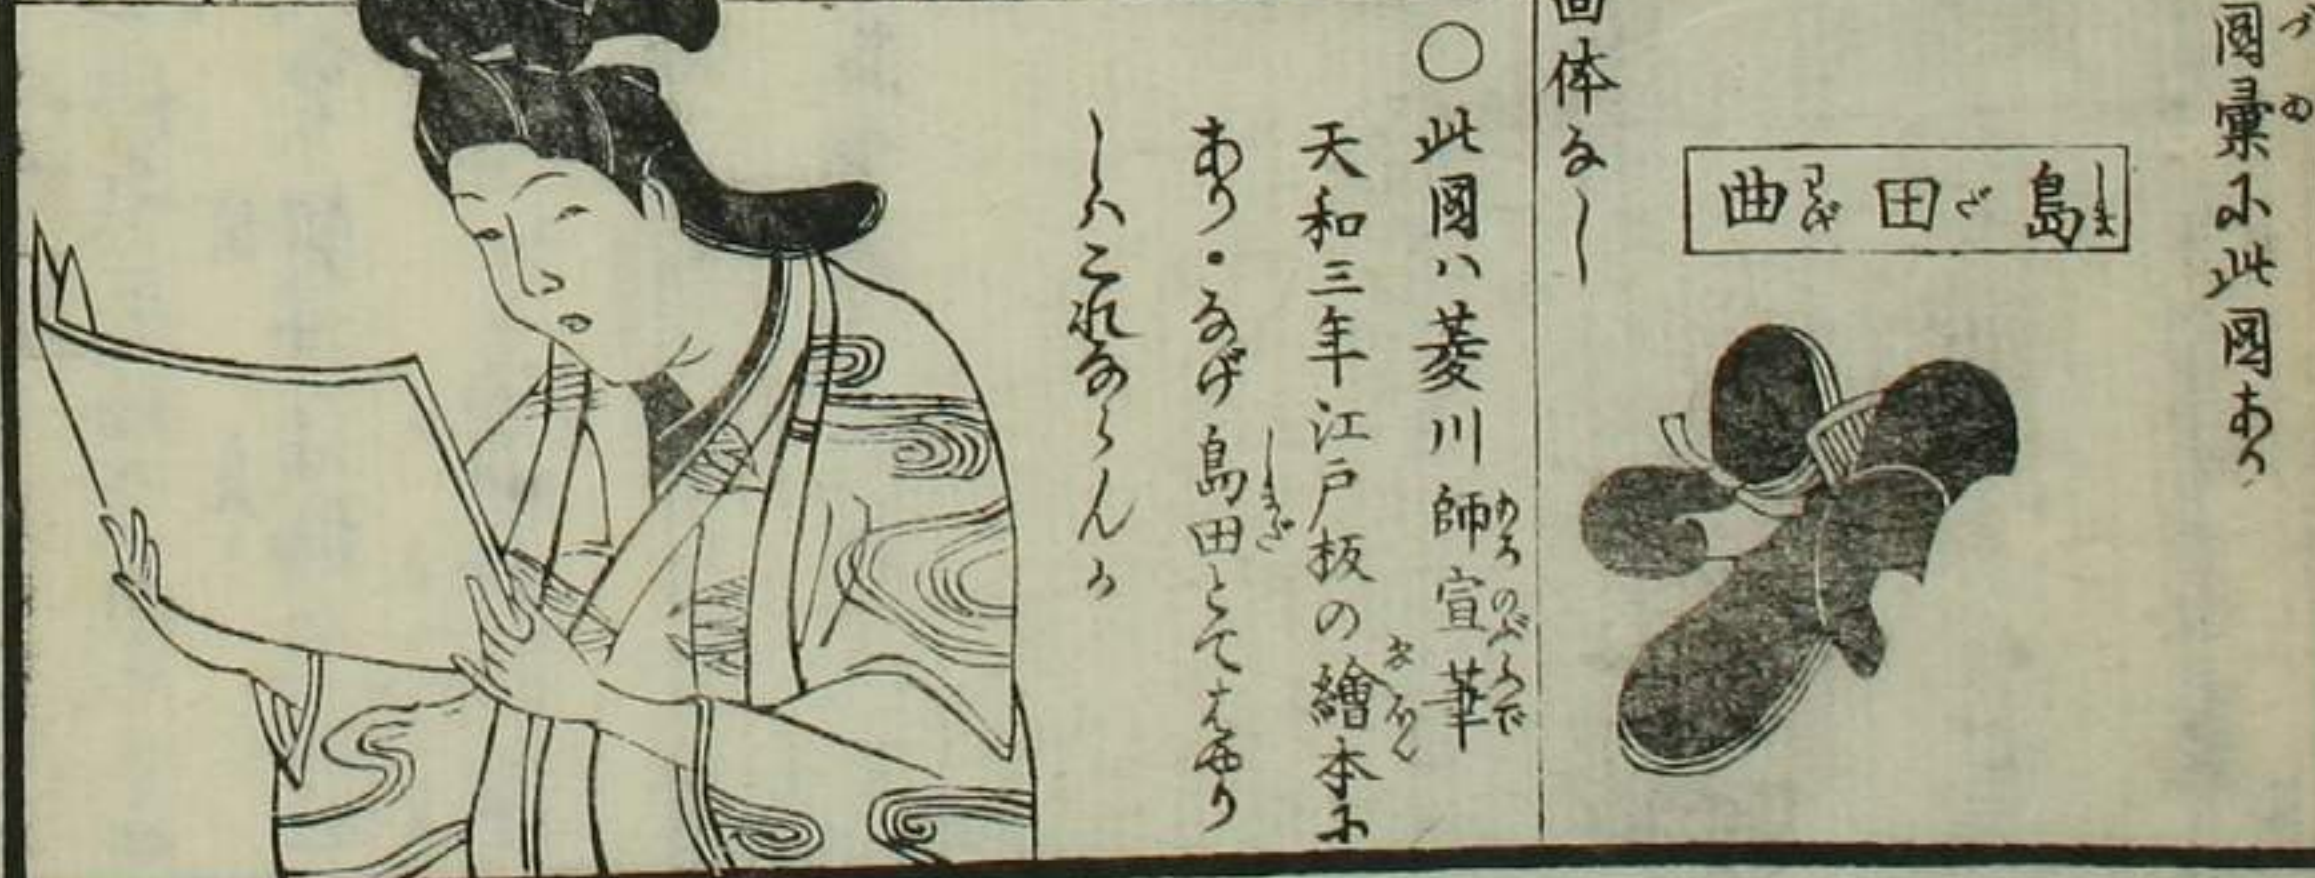 圖彙に此圖あり
島田曲
体なし
○此圖ハ菱川師宣筆
天和三年江戸板の繪本に
あり・なげ島田とてはやり
しハこれならんか